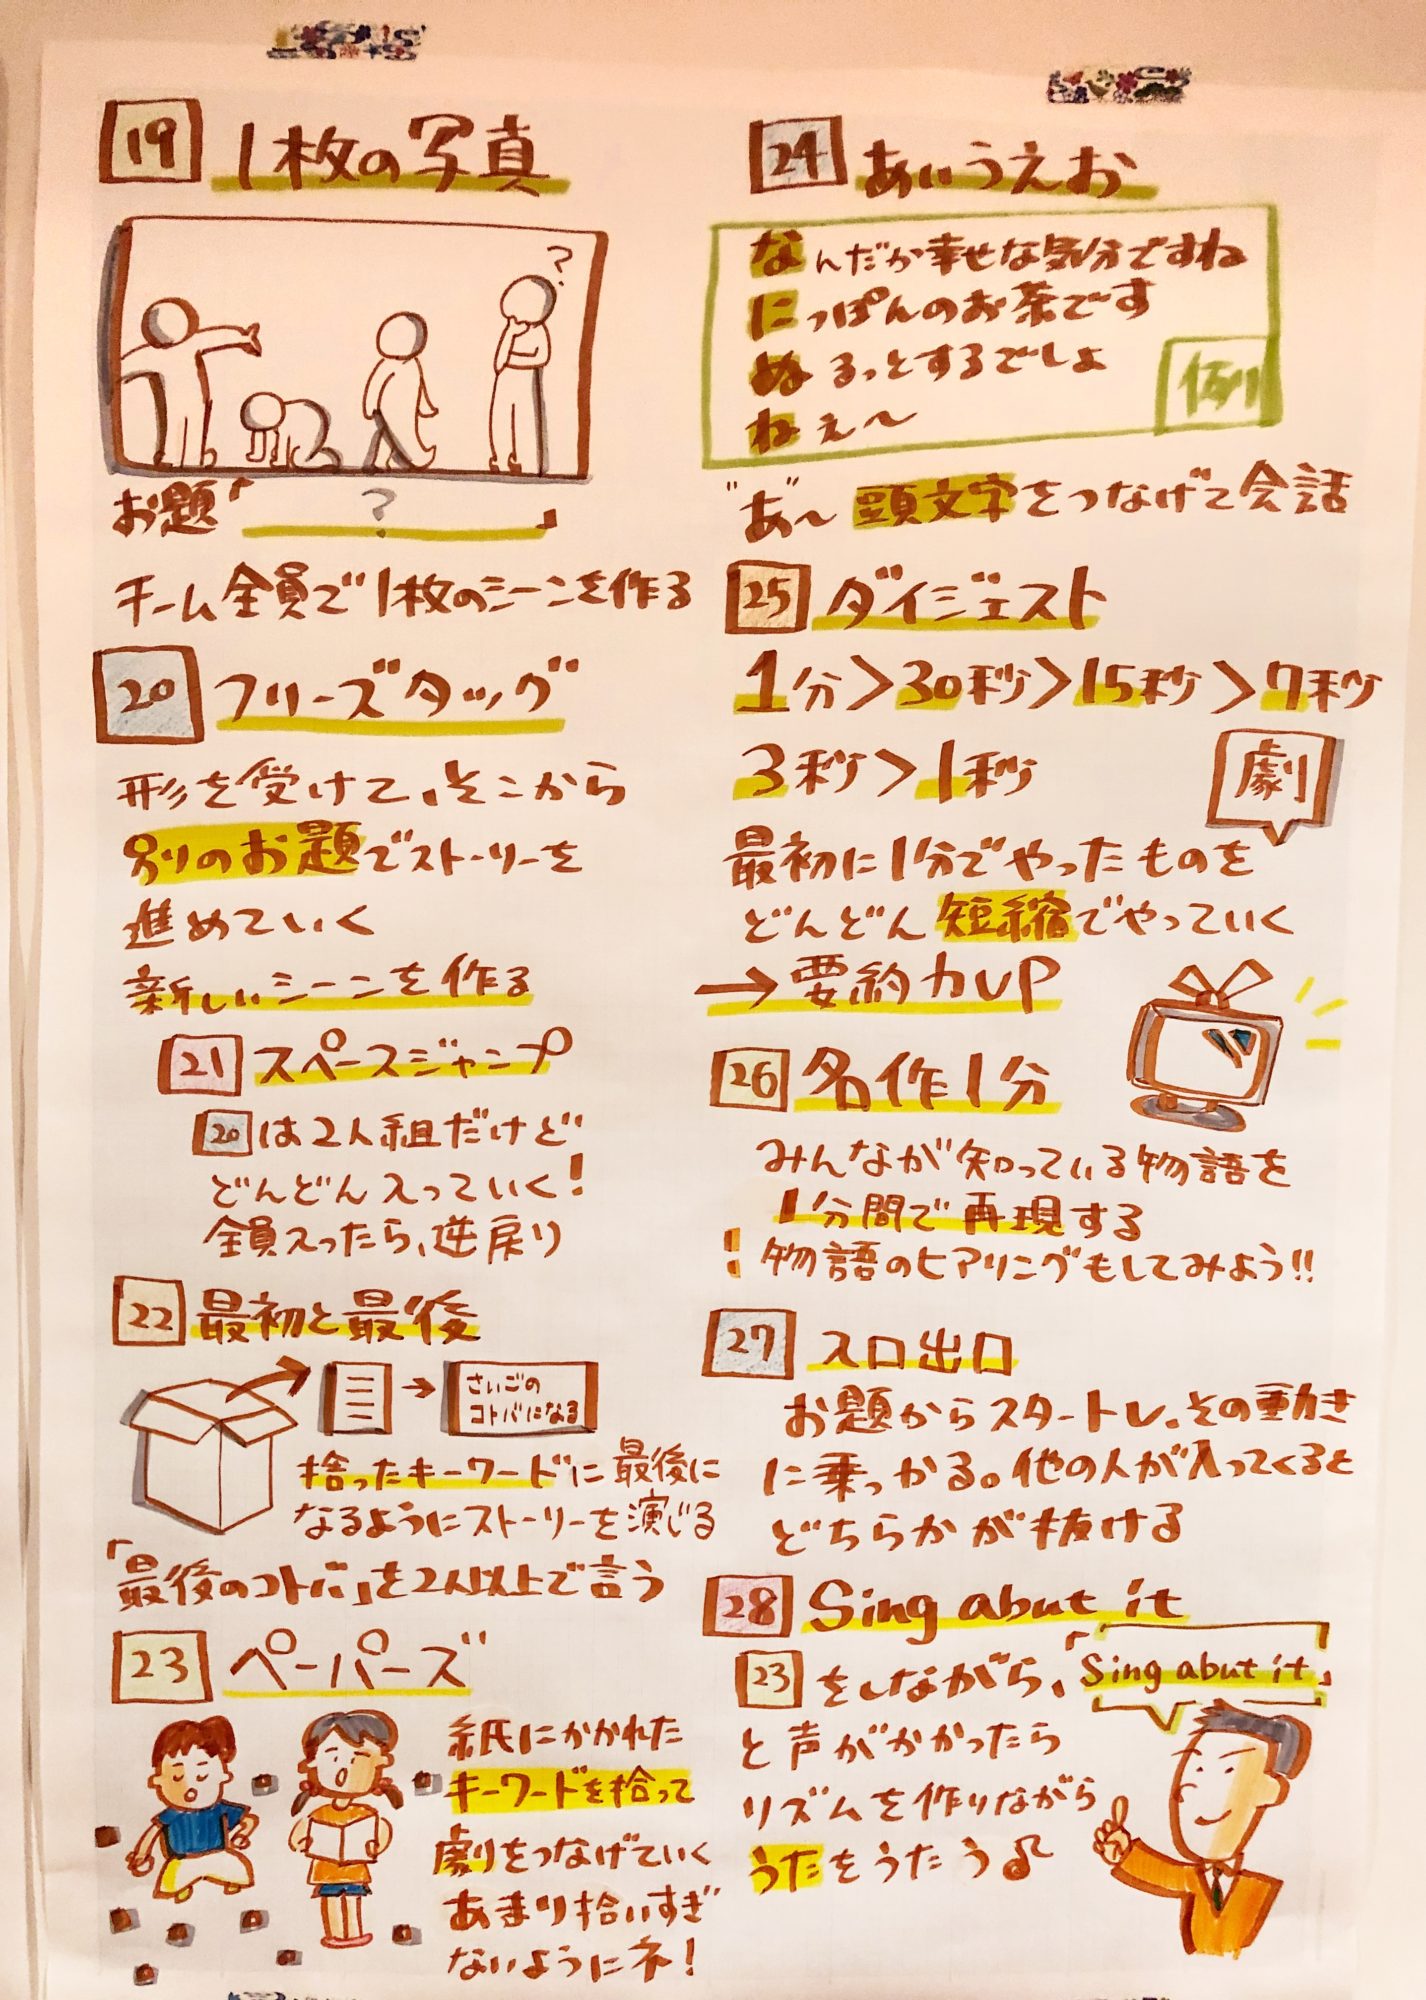 19 1枚の写真
?
お題「 ? 」
チーム全員で1枚のシーンを作る
20 フリーズタッグ
形を受けて、そこから
別のお題でストーリーを
進めていく
新しいシーンを作る
21 スペースジャンプ
20は2人組だけど
どんどん入っていく!
全員入ったら、逆戻り
22 最初と最後
さいごの
コトバになる
拾ったキーワードに最後に
なるようにストーリーを演じる
「最後のコトバ」を2人以上で言う
23 ペーパーズ
紙にかかれた
キーワードを拾って
劇をつなげていく
あまり拾いすぎ
ないようにネ!
24 あいうえお
なんだか幸せな気分ですね
にっぽんのお茶です
ぬるっとするでしょ
ねぇ〜
例
"あ"〜頭文字をつなげて会話
25 ダイジェスト
1分>30秒>15秒>7秒
3秒>1秒
劇
最初に1分でやったものを
どんどん短縮でやっていく
→要約力UP
26 名作1分
みんなが知っている物語を
1分間で再現する
!物語のヒアリングもしてみよう!!
27 入口出口
お題からスタートし、その動き
に乗っかる。他の人が入ってくると
どちらかが抜ける
28 Sing abut it
23をしながら、「Sing abut it」
と声がかかったら
リズムを作りながら
うたをうたう♪